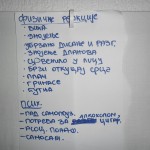 физичке реакције
- вика
- знојење
- убрзано дисање и
- знојење дланова
- црвенило у лицу
- брзи откуцај срца
- плач
- гримасе
- бутња
псих.
- пад самопоуз.
- потреба за алкохолом, цигар.
- асоц. понаш.
- самосаж.